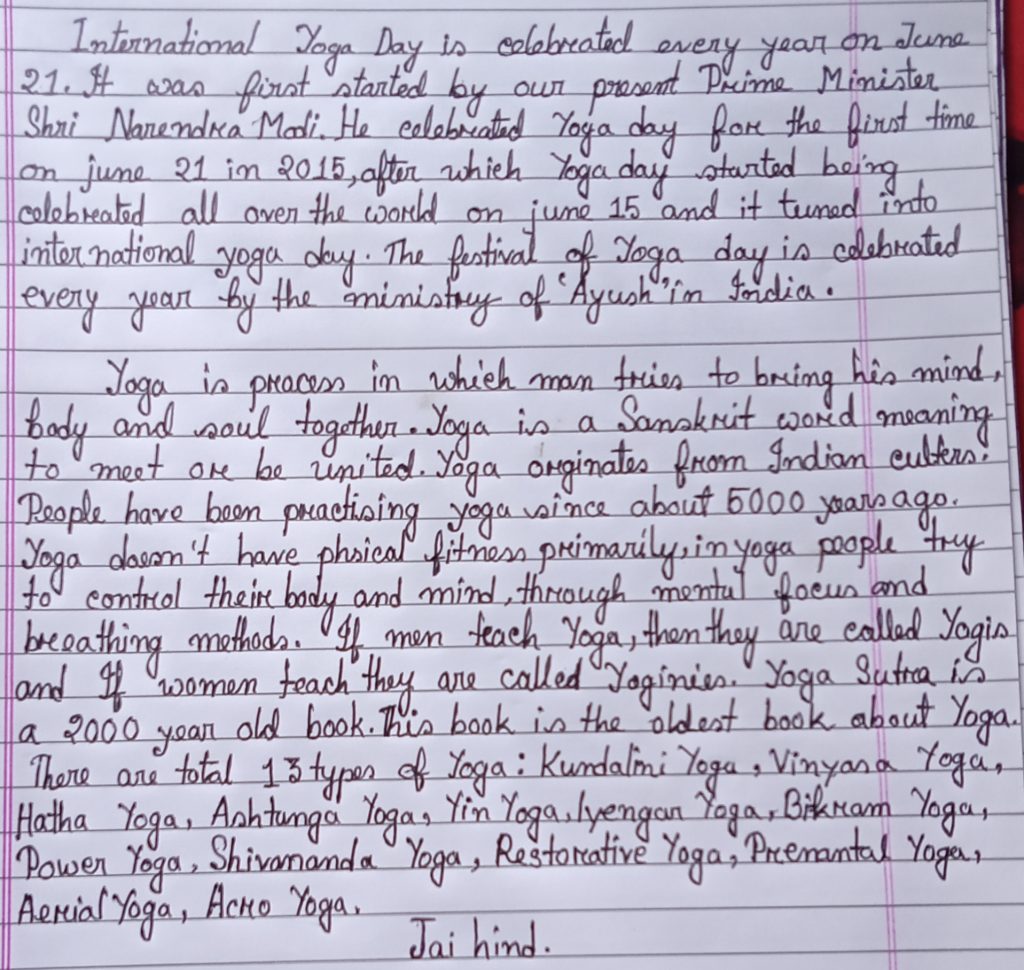 International Yoga Day is celebrated every year on June
21. It was first started by our present Prime Minister
Shri Narendra Modi. He celebrated Yoga day for the first time
on june 21 in 2015, after which Yoga day started being
celebrated all over the world on june 15 and it tuned into
international yoga day. The festival of Yoga day is celebrated
every year by the ministry of 'Ayush' in India.
Yoga is process in which man tries to bring his mind,
body and soul together. Yoga is a Sanskrit word meaning
to meet or be united. Yoga orginates from Indian culters.
People have been practising yoga since about 5000 years ago.
Yoga doesn't have phsical fitness primarily, in yoga people try
to control their body and mind, through mental focus and
breathing methods. If men teach Yoga, then they are called Yogis
and If women teach they are called Yoginies. Yoga Sutra is
a 2000 year old book. This book is the oldest book about Yoga.
There are total 13 types of Yoga: Kundalini Yoga, Vinyasa Yoga,
Hatha Yoga, Ashtunga Yoga, Yin Yoga, Iyengar Yoga, Bikram Yoga,
Power Yoga, Shivananda Yoga, Restorative Yoga, Prenantal Yoga,
Aerial Yoga, Acro Yoga.
Jai hind.